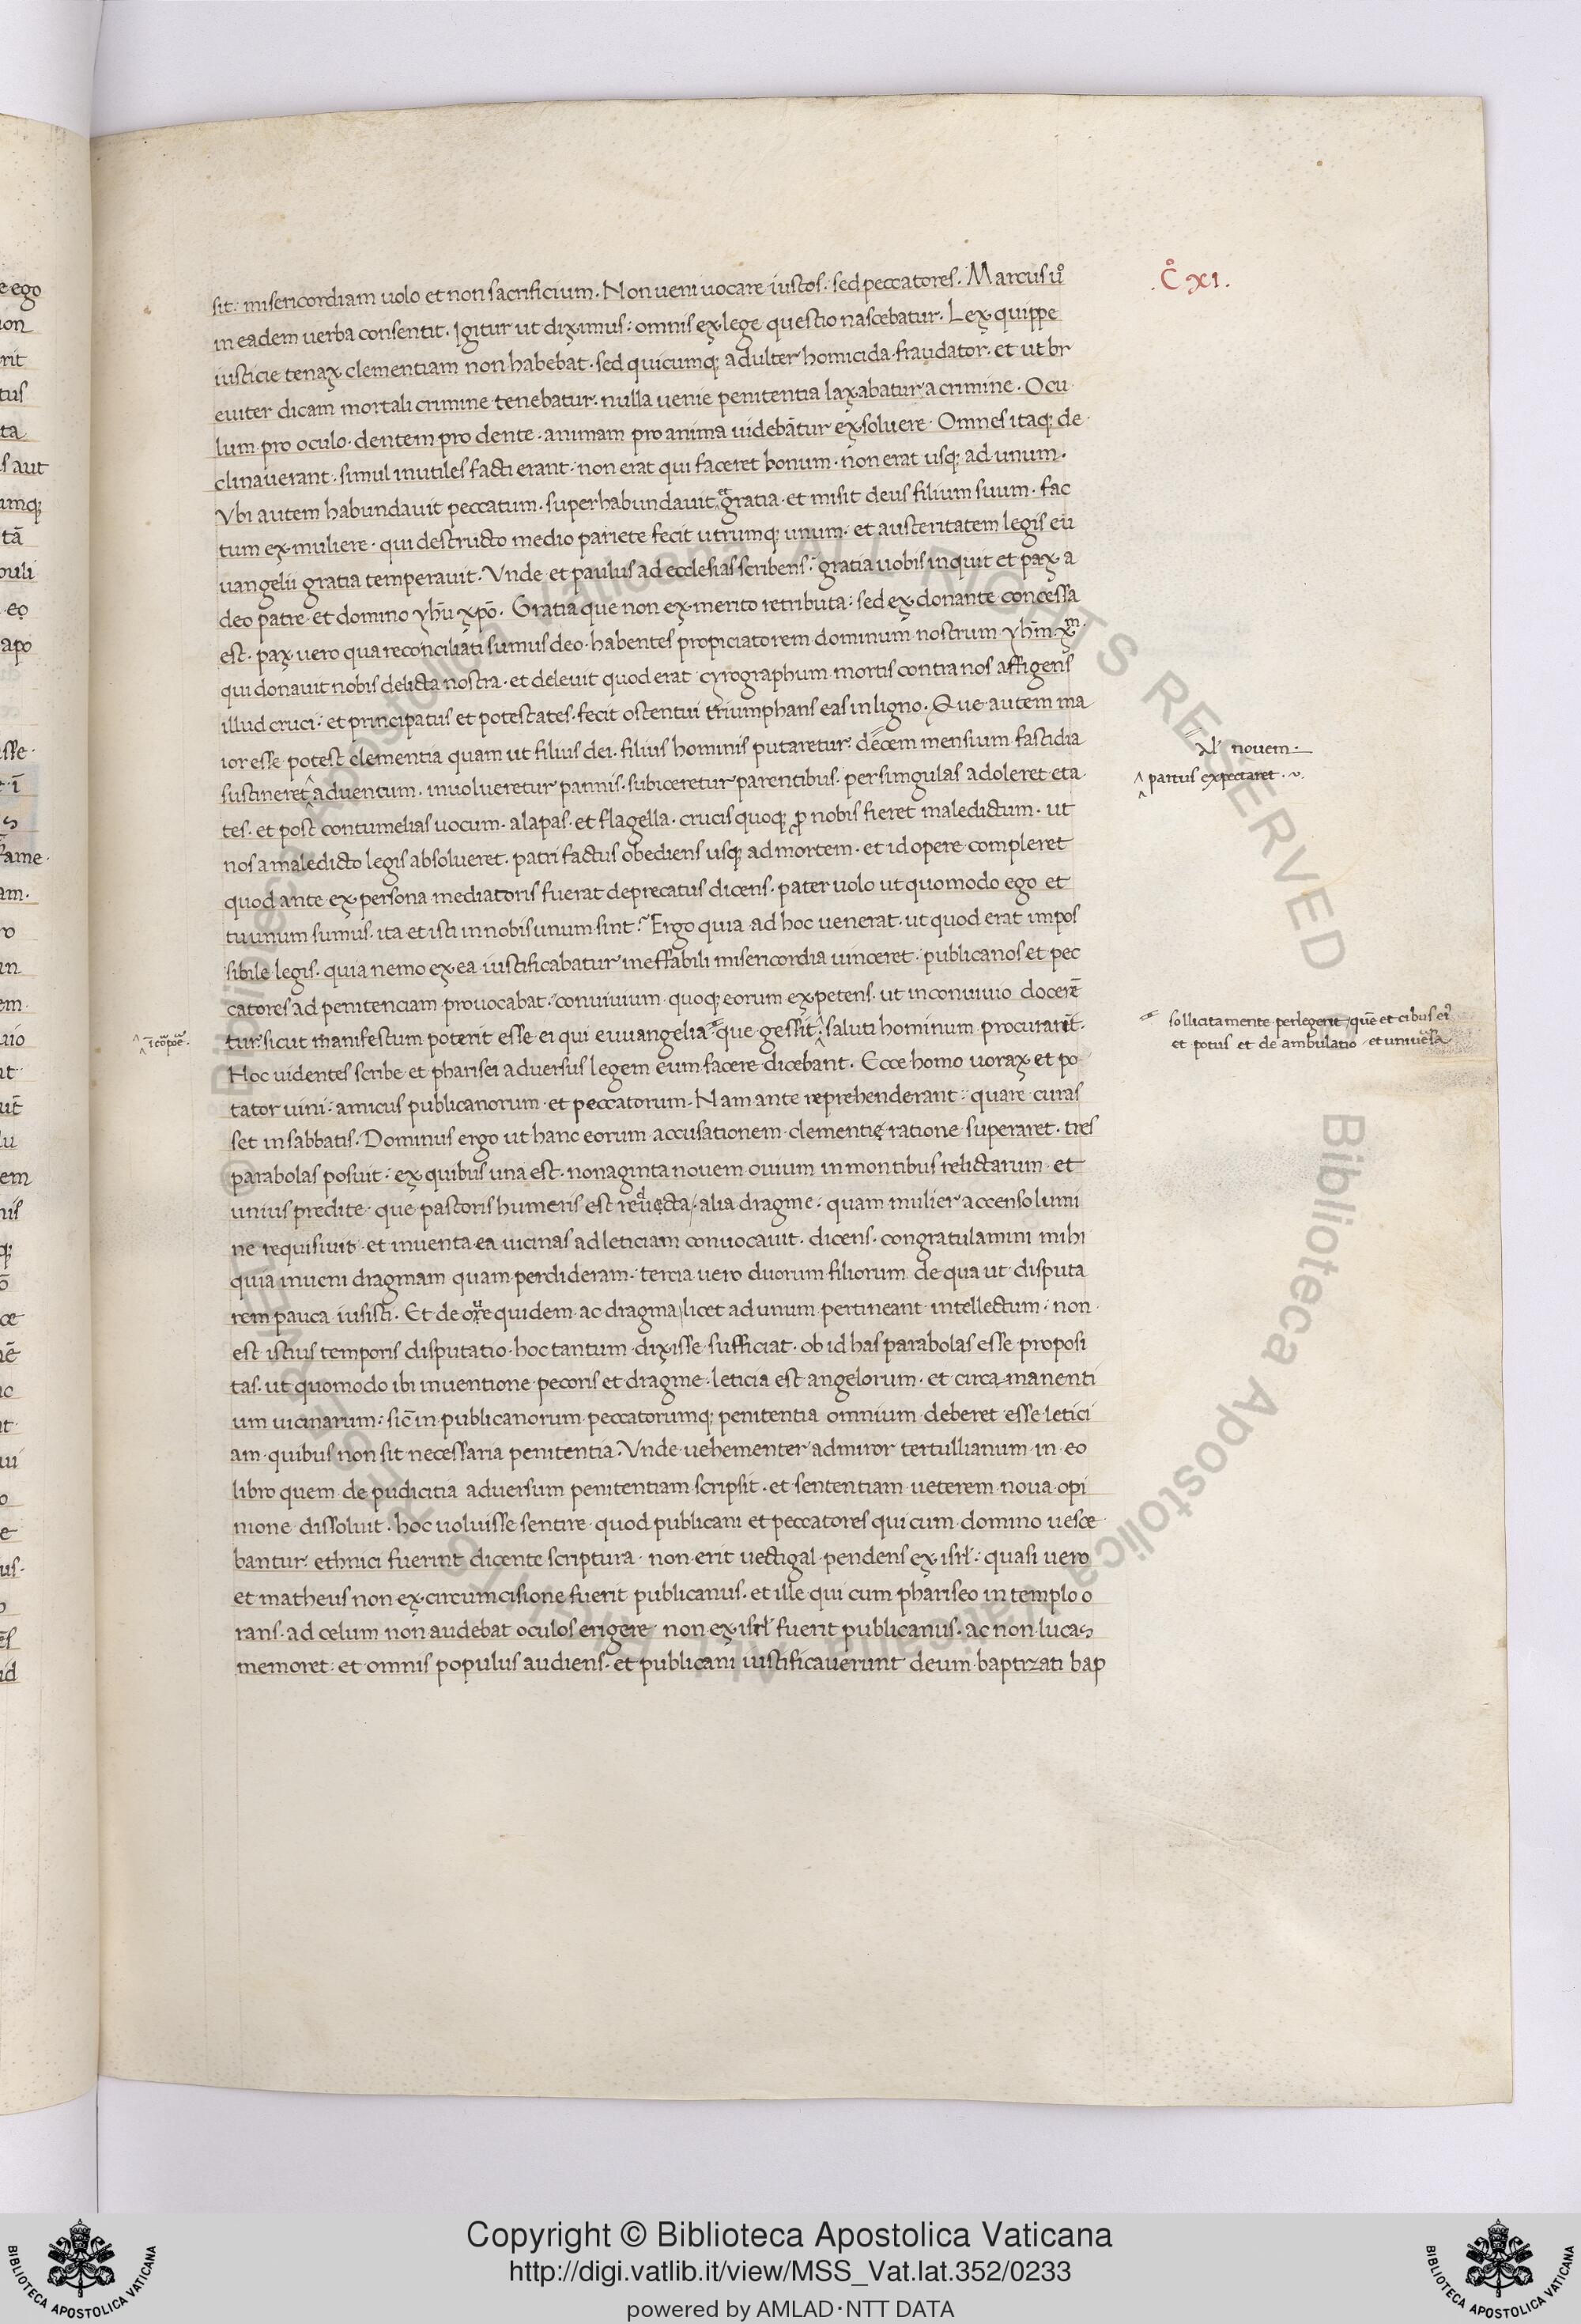 C̊ XI.
sit. misericordiam uolo et non sacrificium. Non ueni uocare iustos. sed peccatores. Marcus u͛o
in eadem uerba consentit. Igitur ut diximus: omnis ex lege questio nascebatur. Lex quippe
iusticie tenax clementiam non habebat. sed quicumq; adulter homicida fraudator. et ut br
euiter dicam mortali crimine tenebatur. nulla uenie penitentia laxabatur a crimine. Ocu
lum pro oculo. dentem pro dente. animam pro anima uidebātur exsoluere. Omnes itaq; de
clinauerant. simul inutiles facti erant. non erat qui faceret bonum. non erat usq; ad unum.
Vbi autem habundauit peccatum. superhabundauit gratia. et misit deus filium suum. fac
tum ex muliere. qui destructo medio pariete fecit utrumq; unum. et austeritatem legis eu
uangelii gratia temperauit. Vnde et paulus ad ecclesias scribens: gratia uobis inquit et pax a
deo patre et domino yhū xpō. Gratia que non ex merito retributa: sed ex donante concessa
est. pax uero qua reconciliati sumus deo. habentes propiciatorem dominum nostrum yhm̄ xm̄.
qui donauit nobis delicta nostra. et deleuit quod erat cyrographum mortis contra nos affigens
illud cruci: et principatus et potestates. fecit ostentui triumphans eas in ligno. Que autem ma
ior esse potest clementia quam ut filius dei. filius hominis putaretur. decem mensium fastidia
Al' nouem.
sustineret aduentum. inuolueretur pannis. subiceretur parentibus. per singulas adoleret eta
partus expectaret. v.
tes. et post contumelias uocum. alapas. et flagella. crucis quoq; ꝓ nobis fieret maledictum. ut
nos a maledicto legis absolueret. patri factus obediens usq; ad mortem. et id opere compleret
quod ante ex persona mediatoris fuerat deprecatus dicens. pater uolo ut quomodo ego et
tu unum sumus. ita et isti in nobis unum sint. Ergo quia ad hoc uenerat. ut quod erat impos
sibile legis. quia nemo ex ea iustificabatur ineffabili misericordia uinceret. publicanos et pec
catores ad penitenciam prouocabat. conuiuium quoq; eorum expetens. ut in conuiuio docerē
tur. sicut manifestum poterit esse ei qui euuangelia que gessit saluti hominum procurarit.
sollicita mente perlegerit, quē et cibus ei͛
et potus et deambulatio et uniu͛sa
Hoc uidentes scribe et pharisei aduersus legem eum facere dicebant. Ecce homo uorax et po
tator uini: amicus publicanorum et peccatorum. Nam ante reprehenderant: quare curas
set in sabbatis. Dominus ergo ut hanc eorum accusationem clementię ratione superaret. tres
parabolas posuit: ex quibus una est. nonaginta nouem ouium in montibus relictarum et
unius predite. que pastoris humeris est reuecta, alia dragme. quam mulier accenso lumi
ne requisiuit. et inuenta ea uicinas ad leticiam conuocauit. dicens. congratulamini mihi
quia inueni dragmam quam perdideram. tercia uero duorum filiorum de qua ut disputa
rem pauca iusisti. Et de oue quidem ac dragma licet ad unum pertineant intellectum: non
est istius temporis disputatio. hoc tantum dixisse sufficiat. ob id has parabolas esse proposi
tas. ut quomodo ibi inuentione pecoris et dragme. leticia est angelorum. et circa manenti
um uicinarum: sic in publicanorum peccatorumq; penitentia omnium deberet esse letici
am. quibus non sit necessaria penitentia. Vnde uehementer admiror tertullianum in eo
libro quem de pudicitia aduersum penitentiam scripsit. et sententiam ueterem noua opi
nione dissoluit. hoc uoluisse sentire quod publicani et peccatores qui cum domino uesce
bantur ethnici fuerint dicente scriptura. non erit uectigal pendens ex isrl': quasi uero
et matheus non ex circumcisione fuerit publicanus. et ille qui cum phariseo in templo o
rans. ad celum non audebat oculos erigere. non ex isrl' fuerit publicanus. ac non lucas
memoret: et omnis populus audiens. et publicani iustificauerunt deum baptizati bap
© Biblioteca Apostolica Vaticana ALL RIGHTS RESERVED
Copyright © Biblioteca Apostolica Vaticana
http://digi.vatlib.it/view/MSS_Vat.lat.352/0233
powered by AMLAD·NTT DATA
BIBLIOTECA APOSTOLICA VATICANA
BIBLIOTECA APOSTOLICA VATICANA